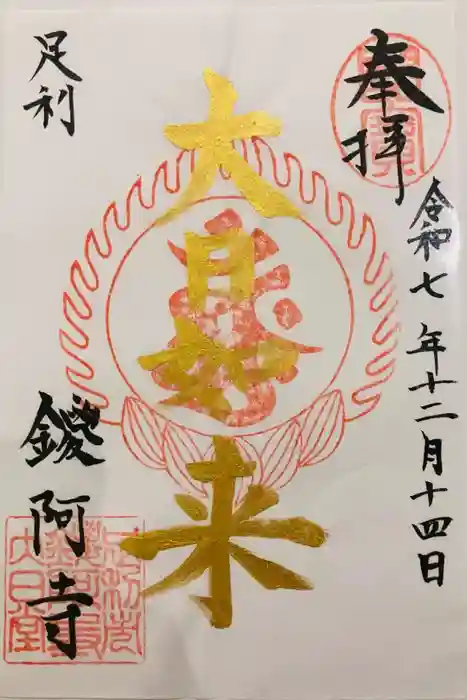 奉拝
令和七年十二月十四日
大日如来
足利
鑁阿寺